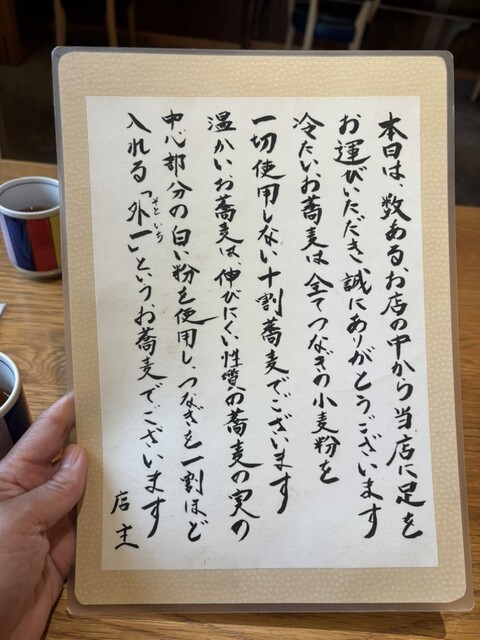 本日は、数あるお店の中から当店に足を
お運びいただき誠にありがとうございます
冷たいお蕎麦は全てつなぎの小麦粉を
一切使用しない十割蕎麦でございます
温かいお蕎麦は、伸びにくい性質の蕎麦の実の
中心部分の白い粉を使用し、つなぎを一割ほど
入れる「外一」というお蕎麦でございます
そといち
店主